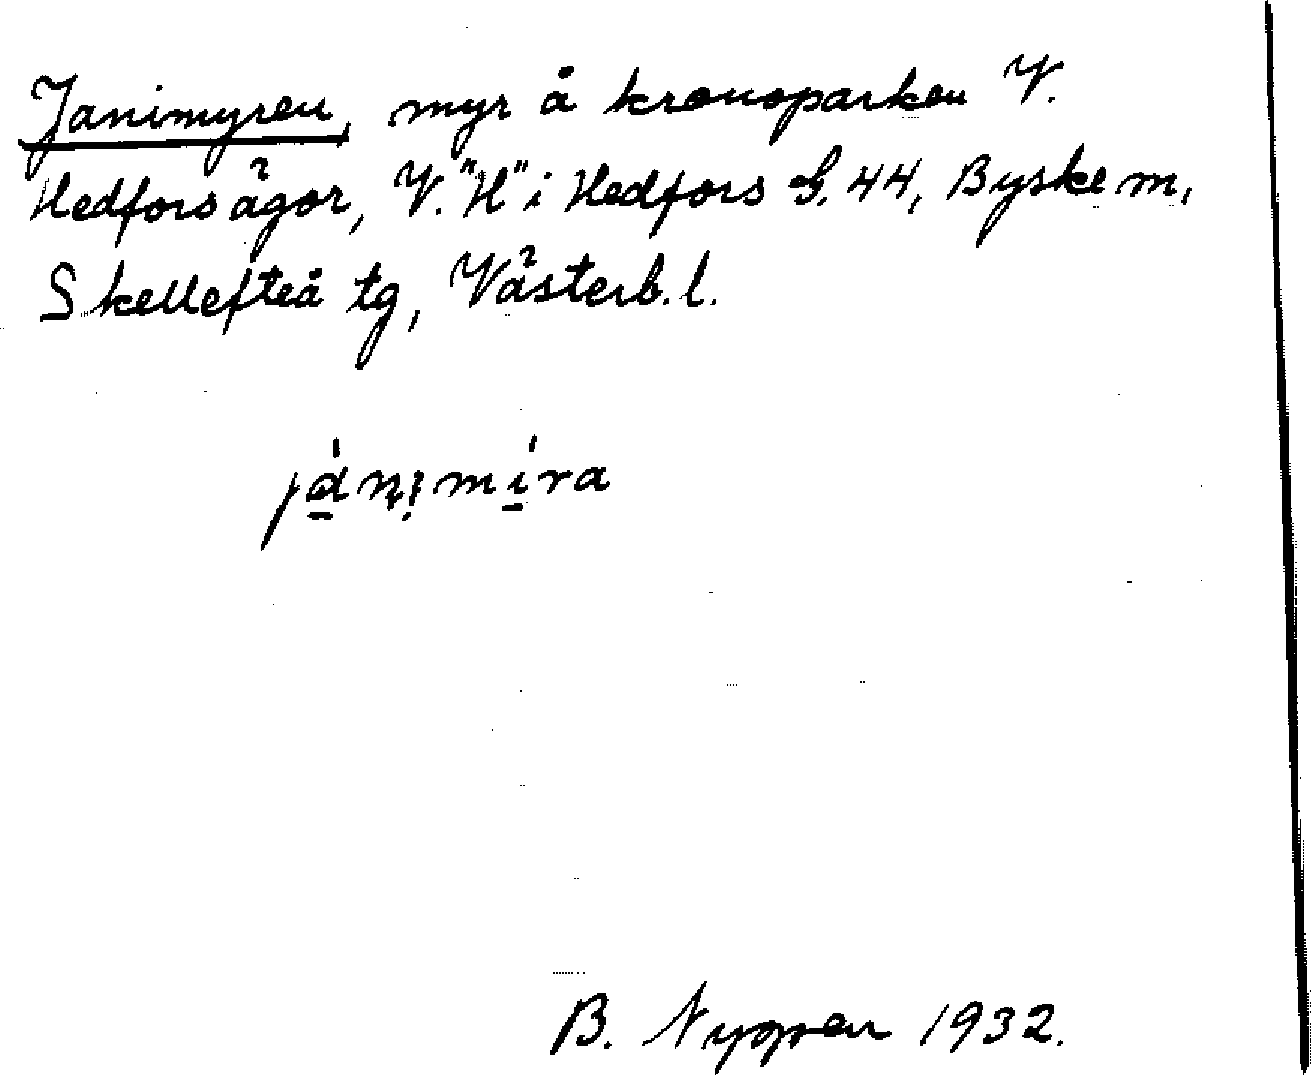 Janimyren, myr å kronoparken V.
Hedfors ägor, V. "H" i Hedfors S. 44, Byske m,
Skellefteå tg, Västerb. l.
jànimíra
B. Nygren 1932.